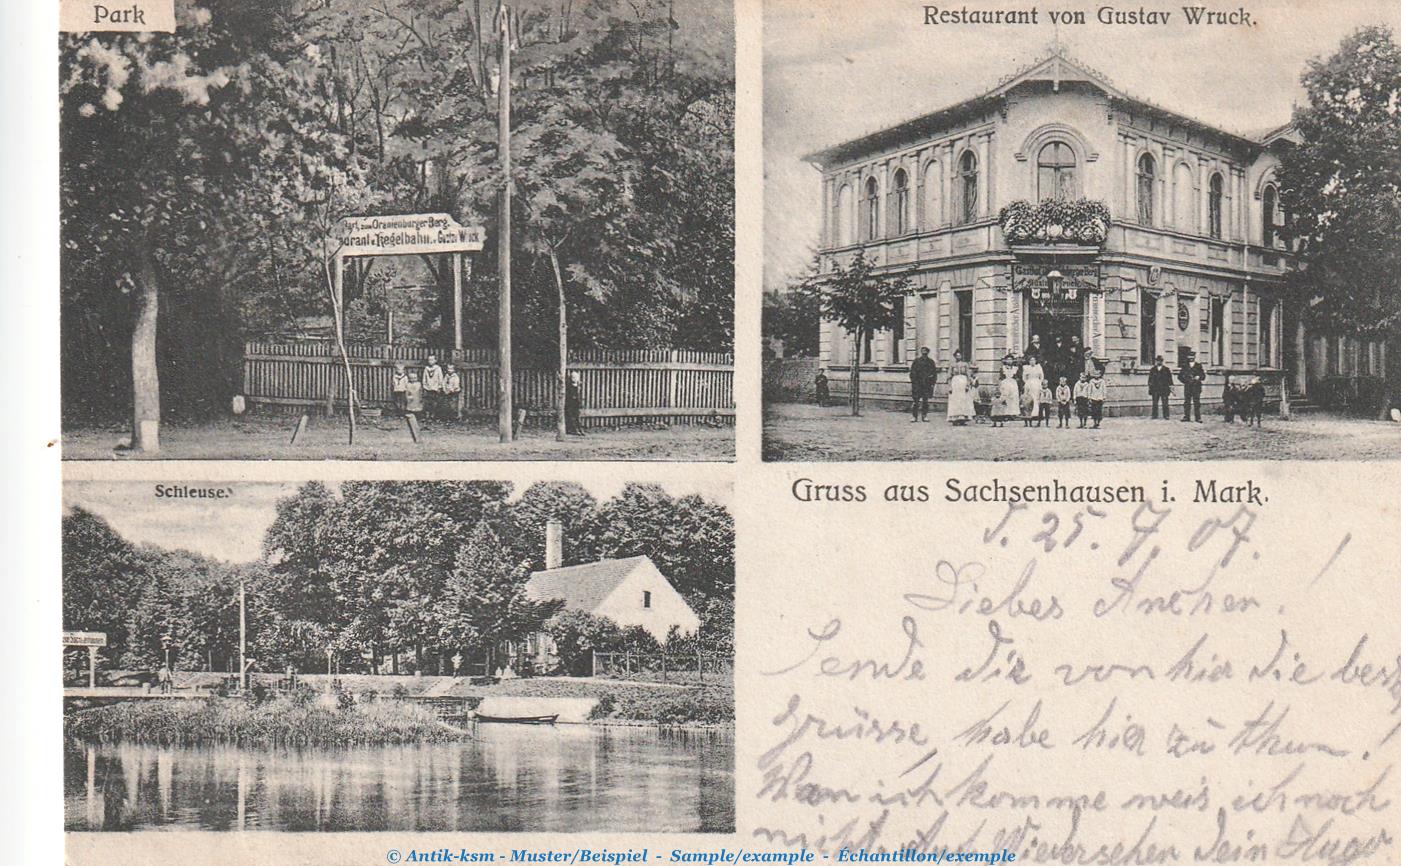 Park
Restaurant von Gustav Wruck.
zum Oranienburger Berg.
Kegelbahn. v. Gustav Wruck
Schleuse.
Gruss aus Sachsenhausen i. Mark.
25. 7. 07.
Liebes Anchen!
Sende Dir von hier die besten
Grüsse, habe hier zu thun!
Wan ich komme weis ich noch
nicht. Auf Wiersehen Dein Hugo
© Antik-ksm - Muster/Beispiel - Sample/example - Échantillon/exemple